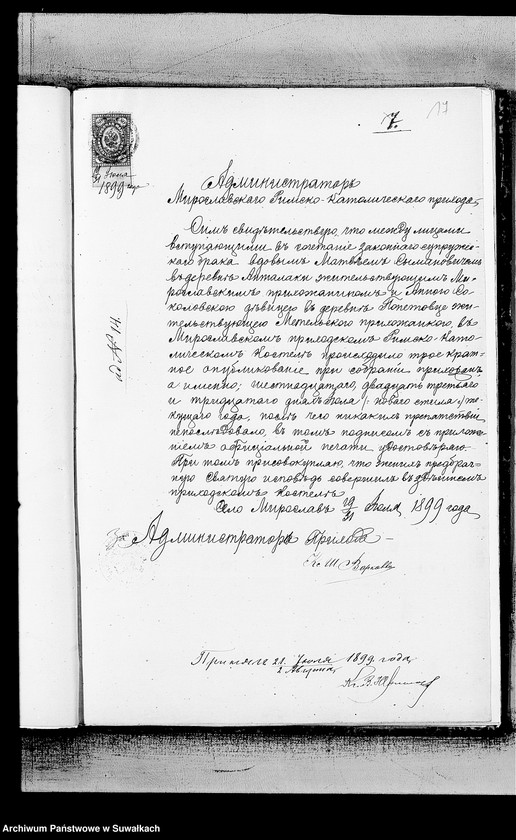 7.
17
19/31 Іюля
1899 года
ad № 14.
Администраторъ
Мирославскаго Римско-Католическаго прихода,
Симъ свидѣтельствую, что между лицами
вступающими въ сочетаніе законнаго супруже-
скаго брака вдовымъ Матвѣемъ Симановичемъ
въ деревнѣ жительствующимъ Ми-
рославскимъ прихожаниномъ и Анною Со-
коловскою дѣвицею въ деревнѣ жи-
тельствующею Метельскою прихожанкою, въ
Мирославскомъ приходскомъ Римско-Като-
лическомъ Костелѣ происходило троекрат-
ное опубликованіе при собраніи прихожанъ
а именно: шестнадцатаго, двадцать третьяго
и тридцатаго дня Іюля /: новаго стиля :/ те-
кущаго года, послѣ чего никакихъ препятствій
непослѣдовало, въ томъ подписомъ съ приложе-
ніемъ оффиціальной печати удостовѣряю.
При томъ присовокупляю, что женихъ предбрач-
ную святую исповѣдь совершилъ въ здѣшнемъ
приходскомъ костелѣ
Село Мирославъ 19/31 Іюля 1899 года
За Администратора Прихода
Кс. Ш.
21. Іюля/2 Августа 1899 года
Кс. В.
Archiwum Państwowe w Suwałkach